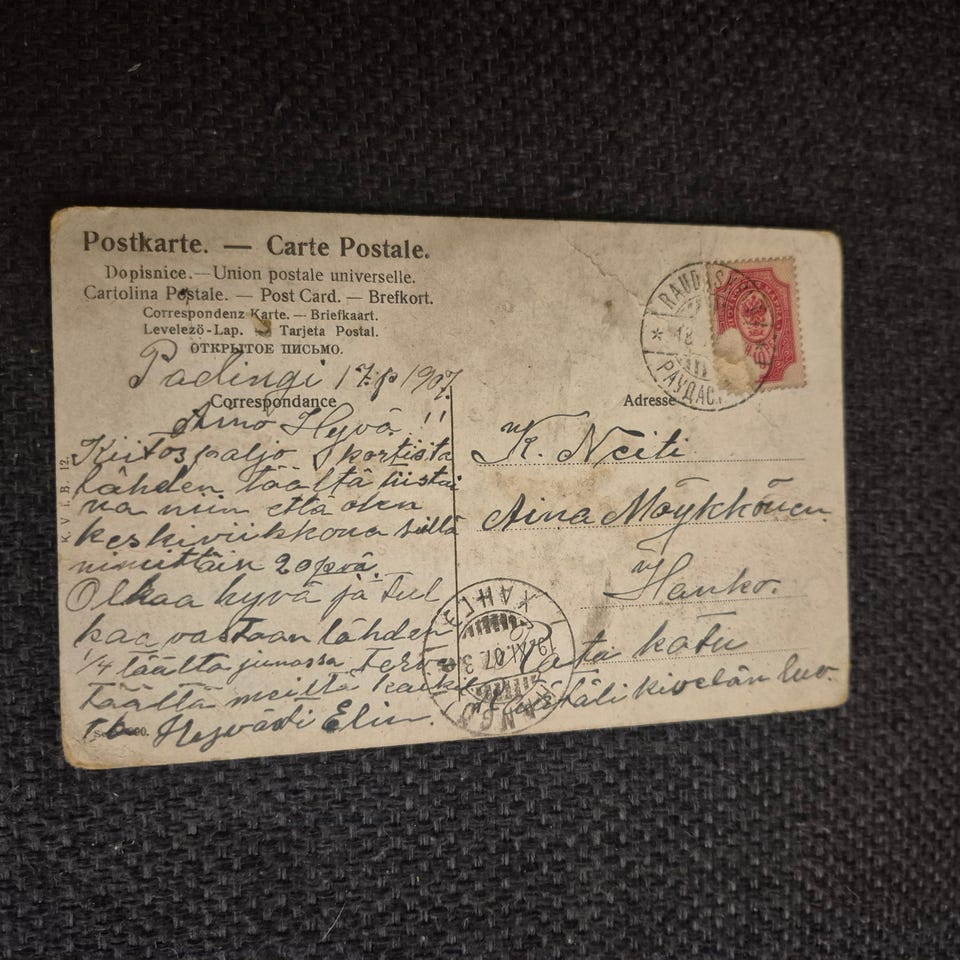 Postkarte. — Carte Postale.
Dopisnice. — Union postale universelle.
Cartolina Postale. — Post Card. — Brefkort.
Correspondenz Karte. — Briefkaart.
Levelező-Lap. — Tarjeta Postal.
ОТКРЫТОЕ ПИСЬМО.
Padingi 17/p 1907.
Correspondance
Aino Hyvä!!
Kiitos paljo kortista
lähden täältä tiistai
na niin että olen
keskiviikkona siellä
nimittäin 20 pevä.
Olkaa hyvä ja tul
kaa vastaan lähden
1/4 täältä junassa Terv
täältä meiltä kaikk
Hyvästi Elin.
K. V. i. B. 12.
Adresse
K. Neiti
Aina Möykkönen.
Hanko.
Rata katu
kivelän luo.
RAUDAS
18
РАУДАС
ХАНГЭ
19.XI.07.3
HANGÖ